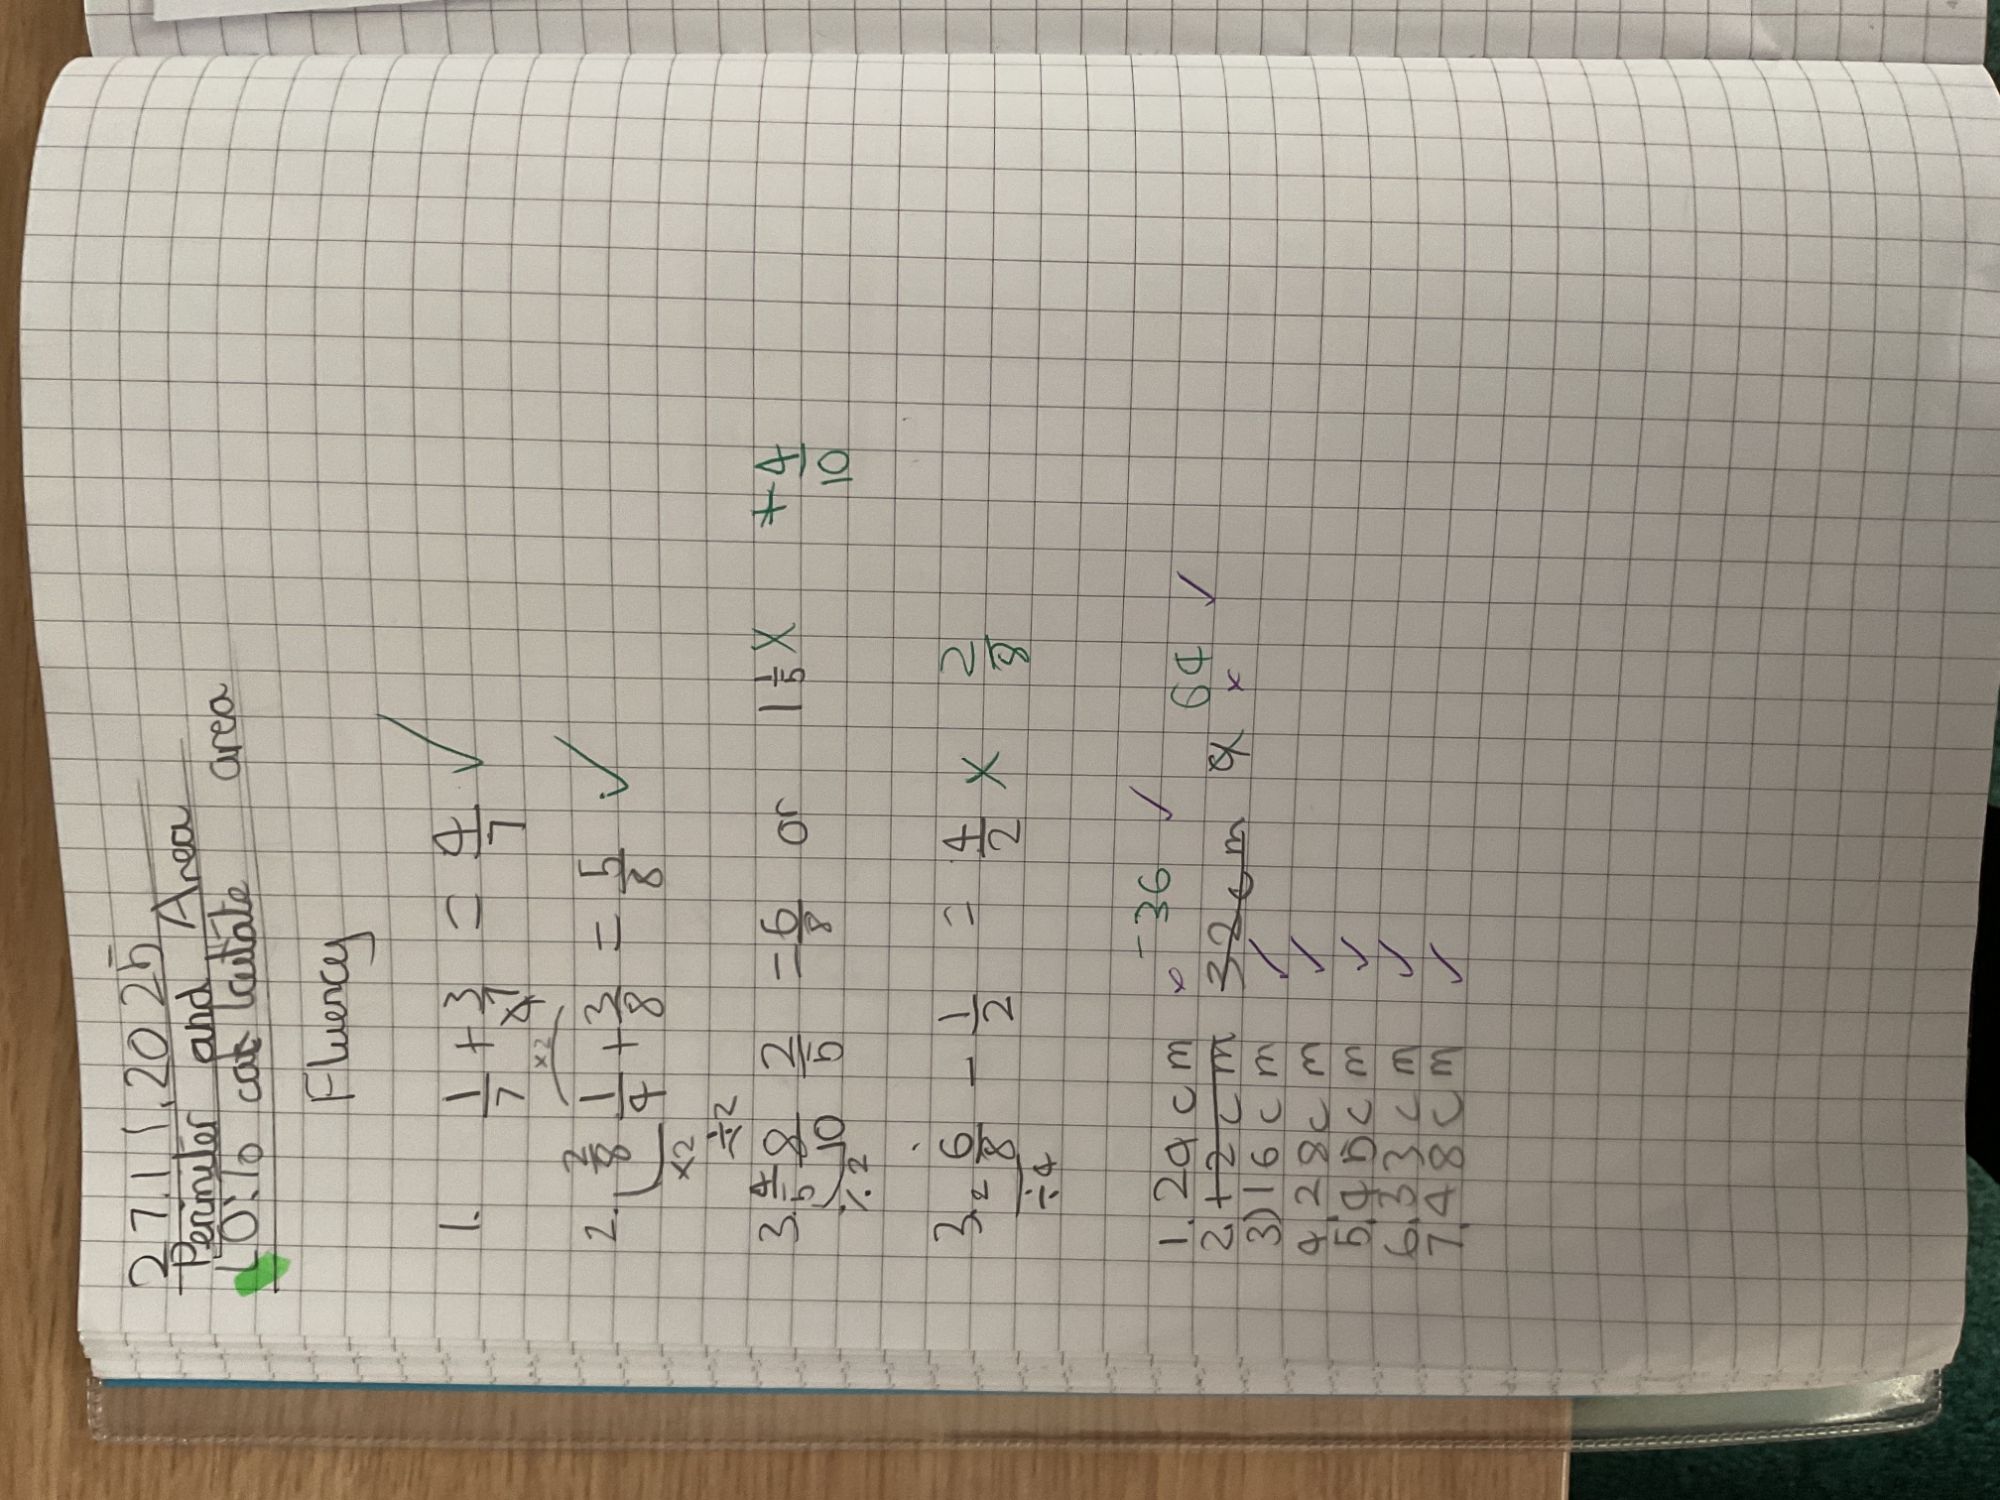 27.11.2025
Perimiter and Area
LO: To calculate area
Fluency
1. 1/7 + 3/7 = 4/7 ✓
×2
2. 2/8 1/4 + 3/8 = 5/8 ✓
×2
÷2
3. 4/5 8/10 - 2/5 = 6/8 or 1 1/5 X 4/10
÷2
3. 6/8 - 1/2 = 4/2 X 2/8
÷4
1. 29cm x - 36 ✓
2. 12cm 32cm x 64 ✓
3) 16cm ✓
4 28cm ✓
5. 45cm ✓
6. 33cm ✓
7. 48cm ✓